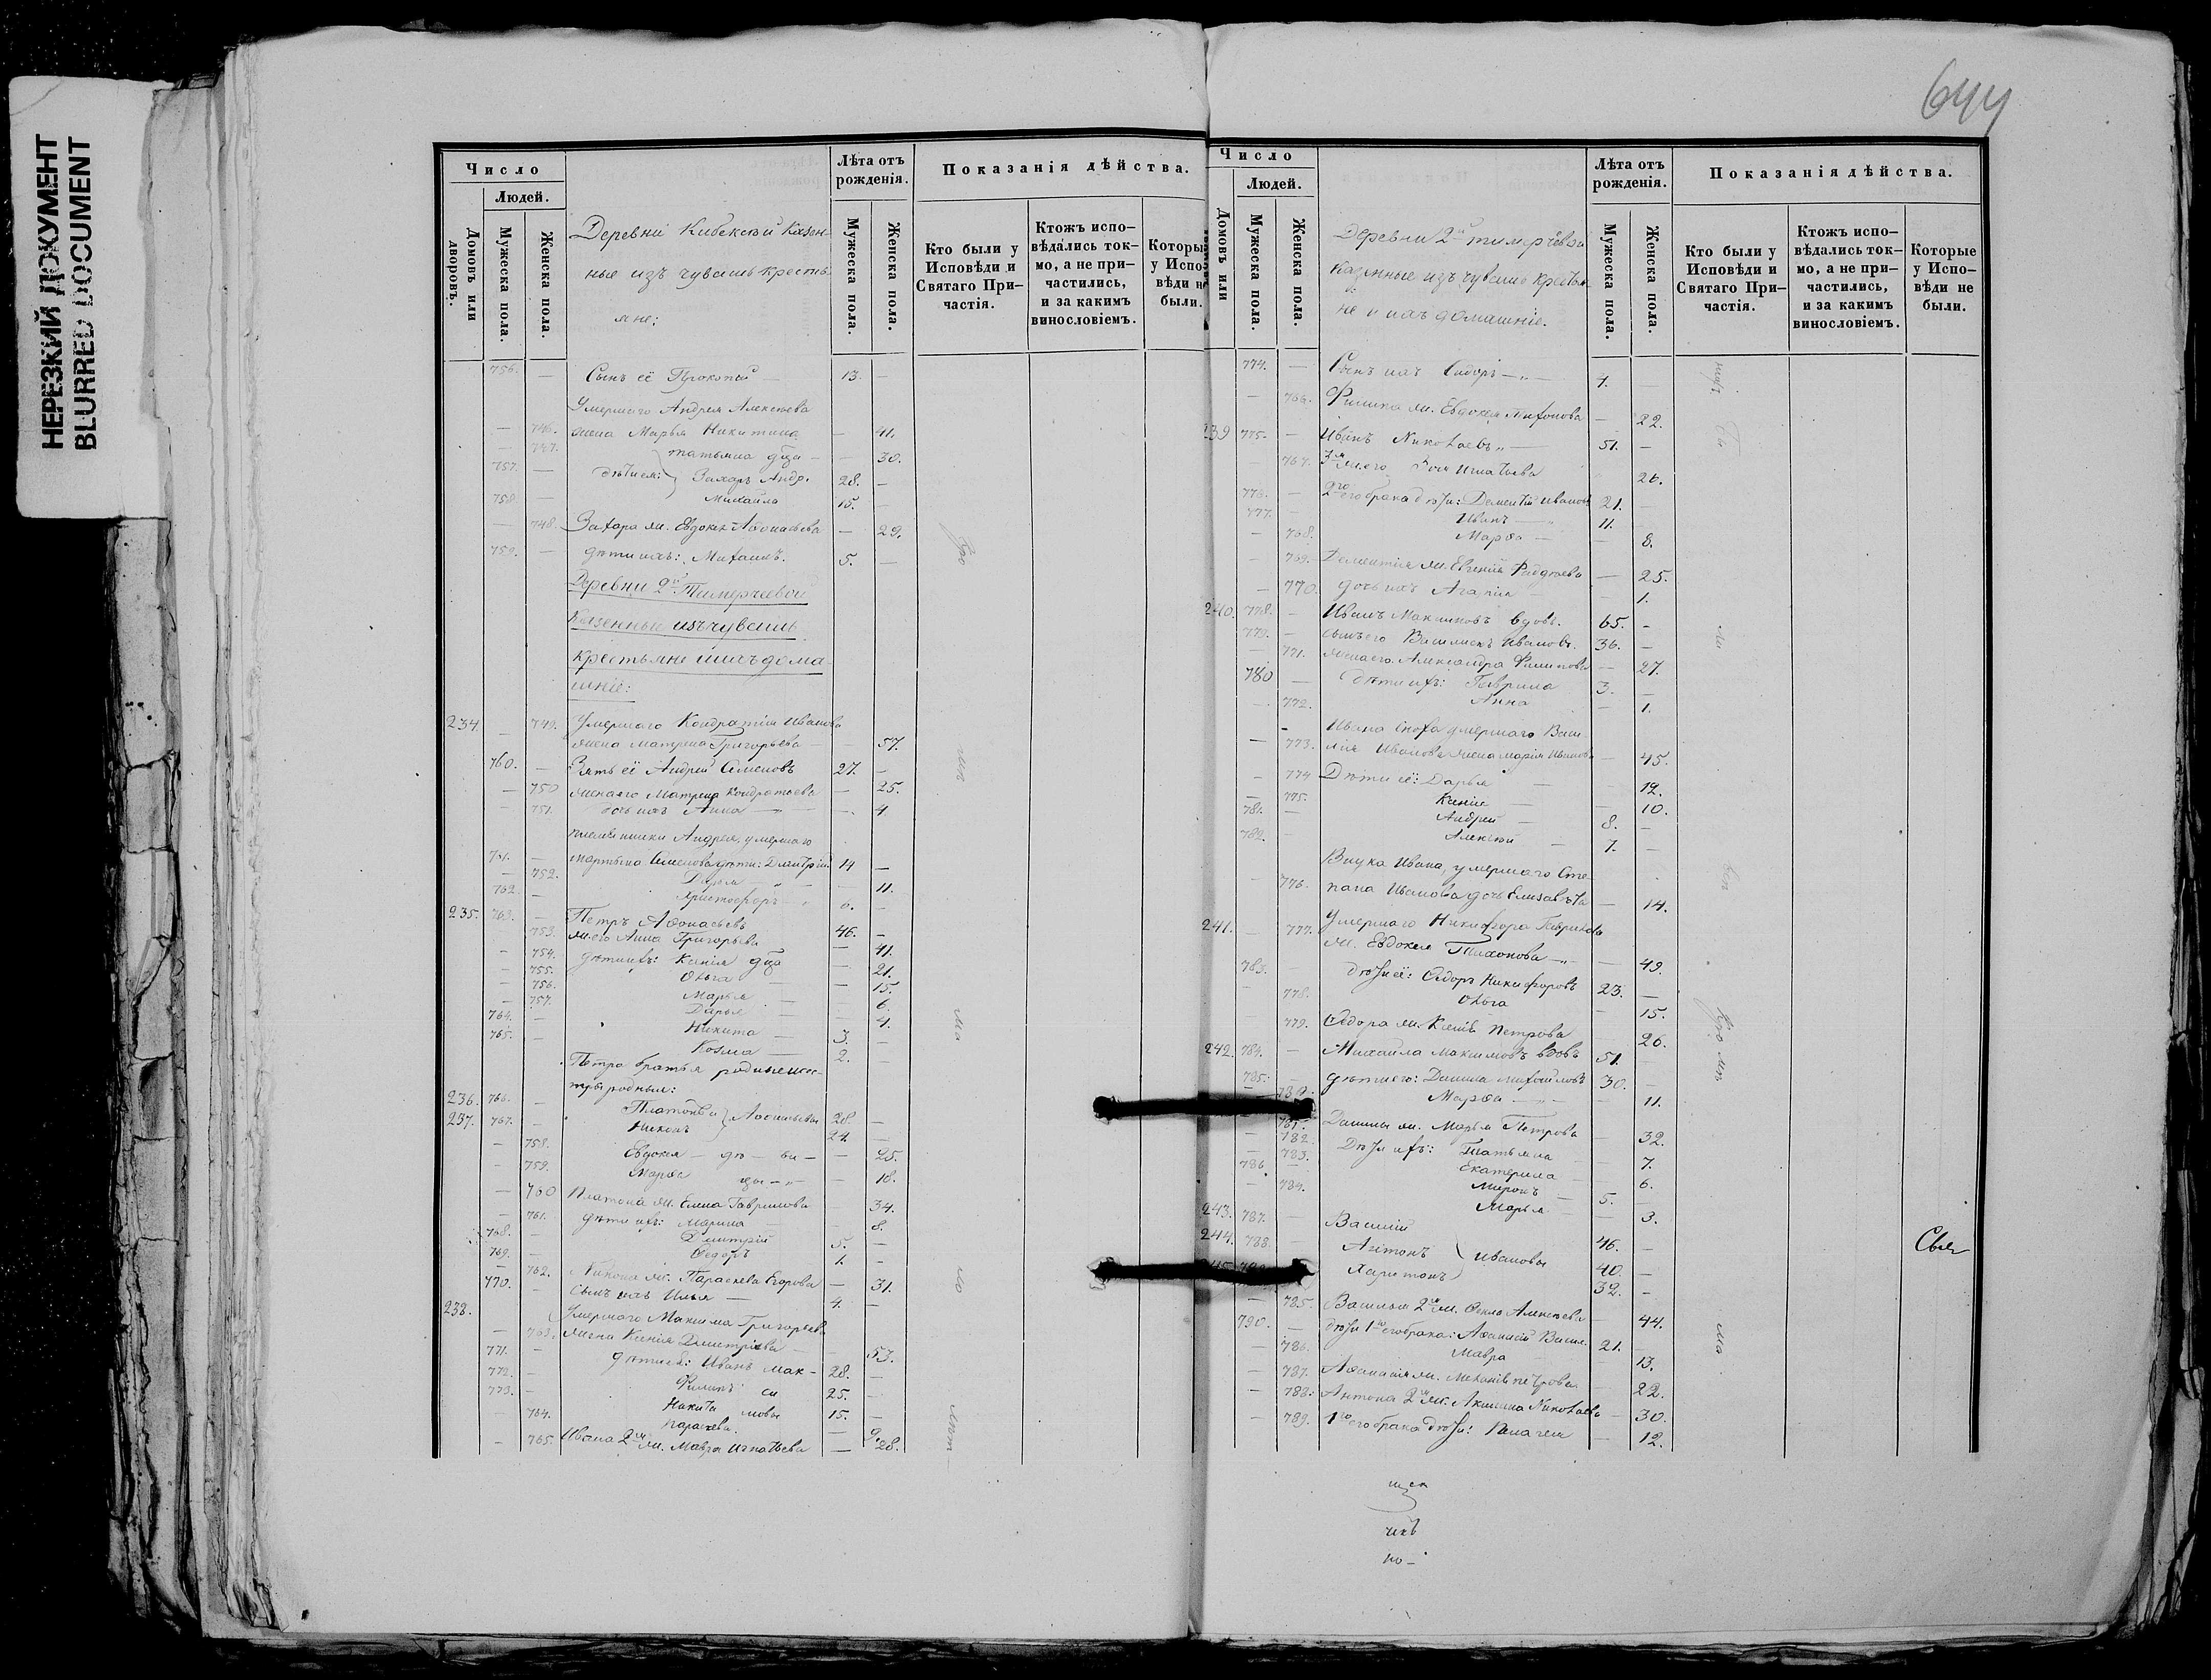 НЕРЕЗКИЙ ДОКУМЕНТ
BLURRED DOCUMENT
Число
Людей.
Домовъ или дворовъ.
Мужеска пола.
Женска пола.
Деревни Кибекси Казен-
ные изъ чувашъ крестья
яне:
Лѣта отъ рожденія.
Мужеска пола.
Женска пола.
Показанія дѣйства.
Кто были у Исповѣди и Святаго При-частія.
Ктожъ испо-вѣдались ток-мо, а не при-частились, и за какимъ винословіемъ.
Которые у Испо-вѣди не были.
756. — Сынъ её Прокопій — 13. —
Умершаго Андрея Алексѣева
— 746. жена Марья Никитина — 41.
— 747. Татьяна — 30.
757. — дѣти ея: Захаръ Андр. 28. —
758. — Михайла 15. —
— 748. Захара ж. Евдокія Аѳонасьева — 29.
759. — дѣти ихъ: Михаилъ. 5. —
Деревни 2й Тимерчеевой
Казенные изъ чувашъ
крестьяне и ихъ дома-
шніе:
234. — 749. Умершаго Кондратія Иванова
жена Матрена Григорьева — 57.
760. — Зять её Андрей Семеновъ 27. —
— 750 жена его Матрена Кондратьева — 25.
— 751. дочь ихъ Анна — 4
племянники Андрея, умершаго
761. — Мартына Семенова дѣти: Дмитрій 14 —
— 752. Дарья — 11.
762. — Христофоръ 6. —
235. 763. — Петръ Аѳонасьевъ 46. —
753. ж. его Анна Григорьева — 41.
— 754. дѣти ихъ: Ксенія — 21.
— 755. Ольга — 15.
— 756. Марья — 6.
— 757. Дарья — 4.
764. — Никита 3. —
765. — Козма 2. —
Петра братья родные и сес-
тры родныя:
236. 766. — Платонъ и } Аѳонасьевы 28. —
237. 767. — Никонъ 24 —
— 758. Евдокія — дѣ — ви — 25.
— 759. Марѳа цы — 18.
— 760 Платона ж. Елена Гаврилова — 34.
— 761. дѣти ихъ: Марина — 8.
768. — Дмитрій 5. —
769. — Ѳедоръ 1. —
— 762. Никона ж. Параскева Егорова — 31.
770. — сынъ ихъ Илья — 4. —
238. Умершаго Максима Григорьева
— 763. жена Ксенія Дмитріева — 53.
771. — дѣти её: Иванъ Мак- 28. —
772. — Филипъ си 25. —
773. — Никита мовы 15. —
— 764. Параскева. — 9.
— 765. Ивана 2я ж. Мавра Игнатьева — 28.
644
Число
Людей.
Домовъ или
Мужеска пола.
Женска пола.
Деревни 2й Тимерчевой
Казенные изъ чувашъ крестья
не и ихъ домашніе.
Лѣта отъ рожденія.
Мужеска пола.
Женска пола.
Показанія дѣйства.
Кто были у Исповѣди и Святаго При-частія.
Ктожъ испо-вѣдались ток-мо, а не при-частились, и за какимъ винословіемъ.
Которые у Испо-вѣди не были.
774. — Сынъ ихъ Сидоръ — 4. —
— 766. Филипа ж. Евдокія Тихонова — 22.
239 775. — Иванъ Николаевъ — 51. —
— 767. 3я ж. его Игнатьева 26.
776. — 2го его брака дѣти: Дементій Ивановъ 21. —
777. — Иванъ 11. —
— 768. Марѳа — 8.
— 769. Дементія ж. Евгенія Фаддѣева — 25.
— 770. дочь ихъ Агапія — 1.
240. 778. — Иванъ Максимовъ вдовъ. 65. —
779. — сынъ его Василискъ Ивановъ. 36. —
— 771. жена его Александра Филипова — 27.
780 — дѣти ихъ: Гаврила 3. —
— 772. Анна — 1.
Ивана сноха умершаго Васи-
— 773. лія Иванова жена Марія Иванова — 45.
— 774 Дѣти её: Дарья — 12.
— 775. Ксенія — 10.
781. — Андрей — 8. —
782. — Алексѣй — 7. —
Внука Ивана, умершаго Сте-
— 776. пана Иванова дочь Елизавета — 14.
241. — 777. Умершаго Никифора Гаврилова
ж. Евдокія Тихонова — 49.
783. — дѣти её: Ѳедоръ Никифоровъ 23. —
— 778. Ольга — 15.
— 779. Ѳедора ж. Ксенія Петрова — 26.
242. 784. — Михайла Максимовъ вдовъ 51. —
785. — дѣти его: Данила Михайловъ 30. —
— 780. Марѳа — 11.
— 781. Данилы ж. Марья Петрова — 32.
— 782. Дѣти ихъ: Татьяна — 7.
— 783. Екатерина — 6.
786 — Миронъ 5. —
— 784. Марья — 3.
243. 787. — Василій 46. —
244. 788. — Антонъ } Ивановы 40. —
Харитонъ 32. —
— 785. Василья 2я ж. Ѳекла Алексѣева — 44.
790. — дѣти 1го его брака: Аѳанасій Васил. 21. —
— 786. Мавра — 13.
— 787. Аѳанасія ж. Меланія Петрова 22.
— 788. Антона 2я ж. Акилина Николаева — 30.
— 789. 1го его брака дѣти: Пелагея — 12.